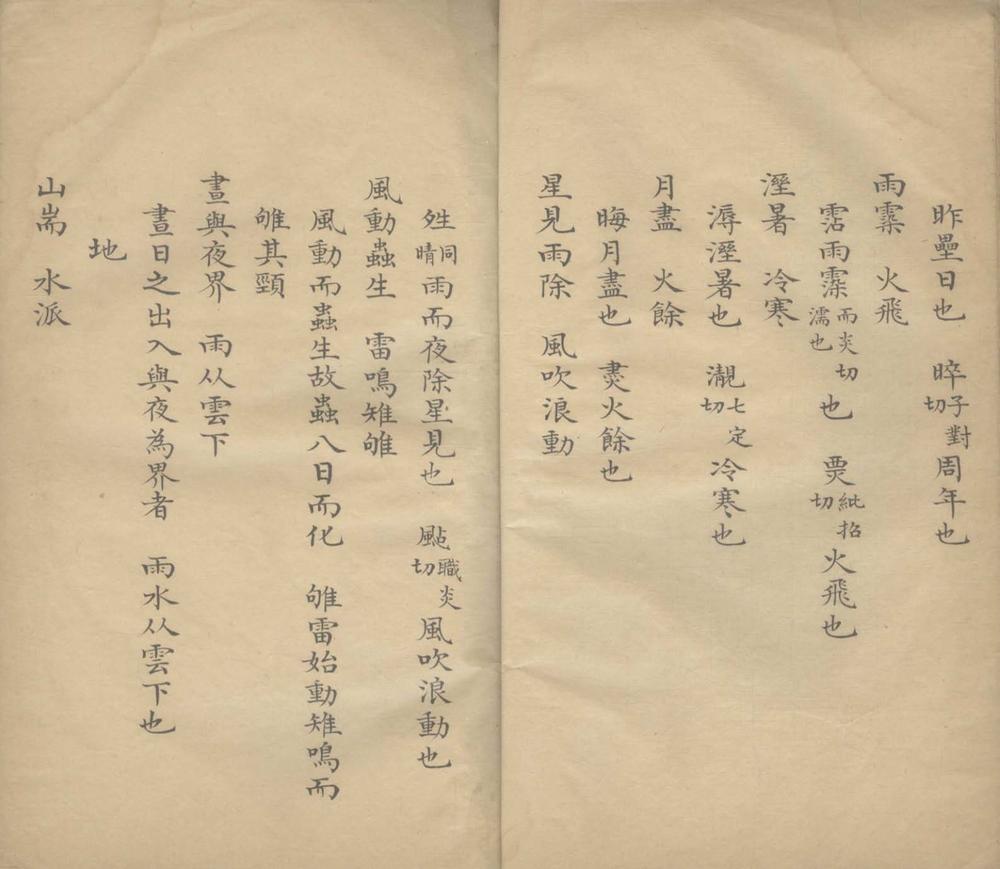 昨壘日也　晬子對切周年也
雨霂　火飛
霑雨霂而炎切濡也也　票紕招切火飛也
溼暑　冷寒
溽溼暑也　瀙七定切冷寒也
月盡　火餘
晦月盡也　㶳火餘也
星見雨除　風吹浪動
夝同晴雨而夜除星見也　颭職炎切風吹浪動也
風動蟲生　雷鳴雉雊
風動而蟲生故蟲八日而化　雊雷始動雉鳴而
雊其頸
晝與夜界　雨从雲下
晝日之出入與夜為界者　雨水从雲下也
地
山耑　水派